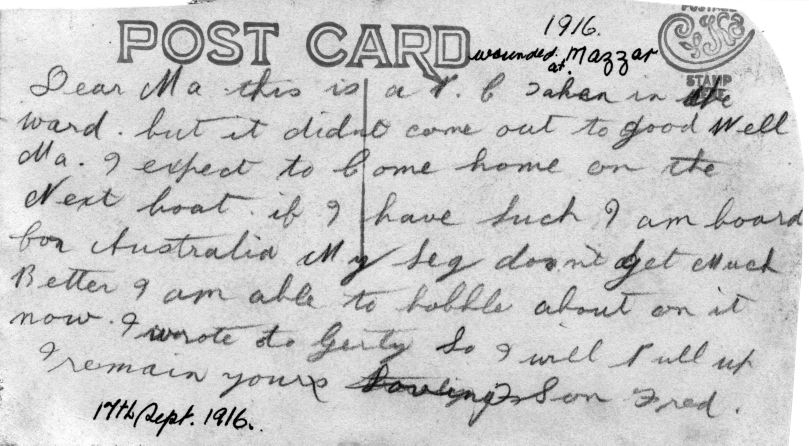 1916.
wounded. at. Mazzar
POST CARD
POSTAGE
STAMP
Dear Ma this is a P. C Taken in the
ward. but it didnt come out to good Well
Ma. I expect to Come home on the
Next boat. if I have luck I am board
for Australia My Leg dosnt get Much
Better I am able to hobble about on it
now. I wrote to Gerty So I will Pull up
I remain yours Loving Son Fred.
17th Sept. 1916.